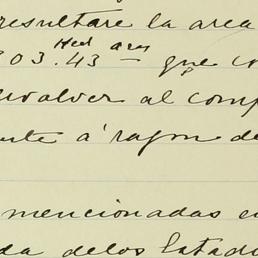 resultare la area
Hect acres
303.43 — que co
evolver al comp
nte á razon de
mencionadas en
da delos Estado